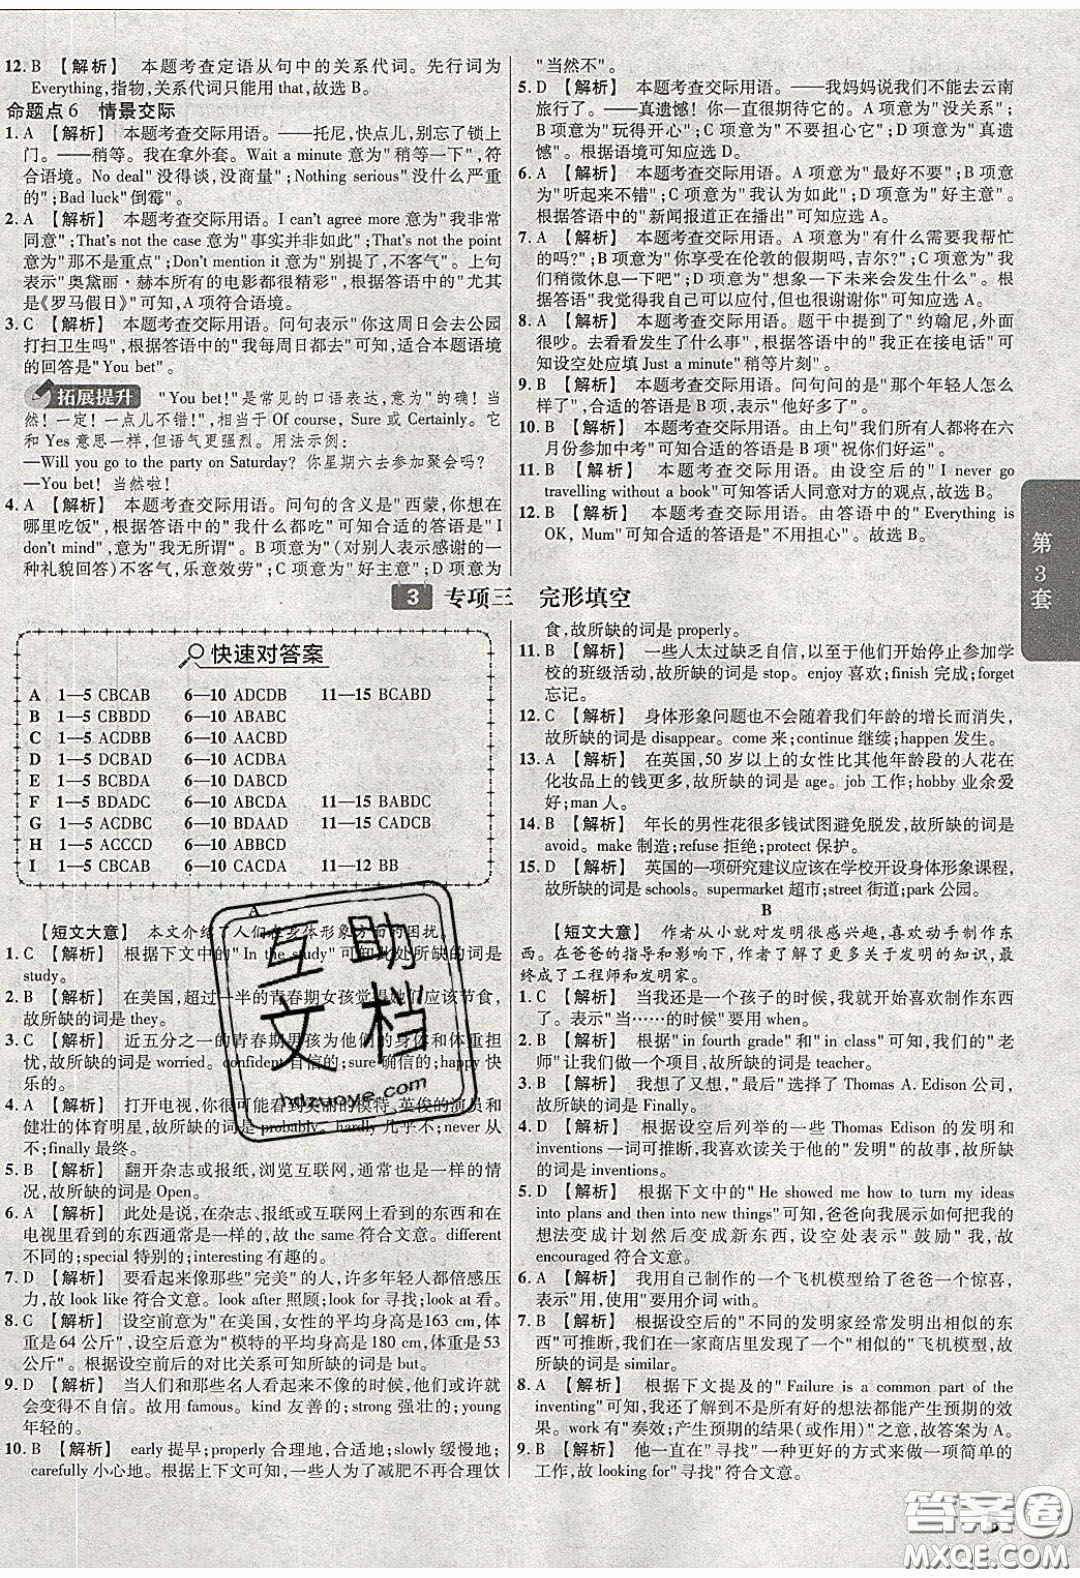 12. B 【解析】 本题考查定语从句中的关系代词。先行词为
Everything,指物,关系代词只能用 that,故选 B。
命题点 6 情景交际
1. A 【解析】 本题考查交际用语。——托尼,快点儿,忘了锁上
门。——稍等。我在拿外套。Wait a minute 意为"稍等一下",符
合语境。No deal"没得谈,没商量";Nothing serious"没什么严重
的";Bad luck"倒霉"。
2. A 【解析】 本题考查交际用语。I can't agree more 意为"我非常
同意";That's not the case 意为"事实并非如此";That's not the point
意为"那不是重点";Don't mention it 意为"别提了,不客气"。上句
表示"奥黛丽·赫本所有的电影都很精彩",根据答语中的"尤其
是《罗马假日》"可知,A 项符合语境。
3. C 【解析】 本题考查交际用语。问句表示"你这周日会去公园
打扫卫生吗",根据答语中的"我每周日都去"可知,适合本题语境
的回答是"You bet"。
拓展提升 "You bet!"是常见的口语表达,意为"的确!当
然!一定!一点儿不错!",相当于 Of course, Sure 或 Certainly。它
和 Yes 意思一样,但语气更强烈。用法示例:
—Will you go to the party on Saturday? 你星期六去参加聚会吗?
—You bet! 当然啦!
4. A 【解析】 本题考查交际用语。问句的含义是"西蒙,你想在
哪里吃饭",根据答语中的"我什么都吃"可知合适的答语是"I
don't mind",意为"我无所谓"。B 项意为"(对别人表示感谢的一
种礼貌回答)不客气,乐意效劳";C 项意为"好主意";D 项意为
"当然不"。
5. D 【解析】 本题考查交际用语。——我妈妈说我们不能去云南
旅行了。——真遗憾!你们很期待它的。A 项意为"没关系";
B 项意为"玩得开心";C 项意为"不要担心它";D 项意为"真遗
憾"。根据语境可知应选 D。
6. A 【解析】 本题考查交际用语。A 项意为"最好不要";B 项意
为"听起来不错";C 项意为"我认为如此";D 项意为"好主意"。
根据答语中的"新闻报道正在播出"可知应选 A。
7. A 【解析】 本题考查交际用语。A 项意为"有什么需要我帮忙
的吗?";B 项意为"你享受在伦敦的假期吗,吉尔?";C 项意为"我
们稍微休息一下吧";D 项意为"想象一下未来会发生什么"。根
据答语"我觉得我自己可以应付,但也很谢谢你"可知应选 A。
8. A 【解析】 本题考查交际用语。题干中提到了"约翰尼,外面
很吵。去看看发生了什么事",根据答语中的"我正在接电话"可
知设空处应填 Just a minute"稍等片刻"。
9. B 【解析】 本题考查交际用语。问句问的是"那个年轻人怎么
样了?",合适的答语是 B 项,表示"他好多了"。
10. B 【解析】 本题考查交际用语。由上句"我们所有人都将在六
月份参加中考"可知合适的答语是 B 项"祝你们好运"。
11. B 【解析】 本题考查交际用语。由设空后的"I never go
travelling without a book"可知答话人同意对方的观点,故选 B。
12. B 【解析】 本题考查交际用语。由答语中的"Everything is
OK, Mum"可知合适的答语是"不用担心"。故选 B。
第3套
3 专项三 完形填空
快速对答案
A 1—5 CBCAB 6—10 ADCDB 11—15 BCABD
B 1—5 CBBDD 6—10 ABABC
C 1—5 ACDBB 6—10 AACBD
D 1—5 DCBAD 6—10 ACDBA
E 1—5 BCBDA 6—10 DABCD
F 1—5 BDADC 6—10 ABCDA 11—15 BABDC
G 1—5 ACDBC 6—10 BDAAD 11—15 CADCB
H 1—5 ACCCD 6—10 ABBCD
I 1—5 CBCAB 6—10 CACDA 11—12 BB
A
【短文大意】 本文介绍了人们在身体形象方面的困扰。
1. C 【解析】 根据下文中的"In the study"可知此处所缺的词是
study。
2. B 【解析】 在美国,超过一半的青春期女孩觉得她们应该节食,
故所缺的词是 they。
3. C 【解析】 近五分之一的青春期男孩为他们的身体和体重担
忧,故所缺的词是 worried。confident 自信的;sure 确信的;happy 快
乐的。
4. A 【解析】 打开电视,你很可能看到美丽的模特,英俊的演员和
健壮的体育明星,故所缺的词是 probably。hardly 几乎不;never 从
不;finally 最终。
5. B 【解析】 翻开杂志或报纸,浏览互联网,通常也是一样的情
况,故所缺的词是 Open。
6. A 【解析】 此处是说,在杂志、报纸或互联网上看到的东西和在
电视里看到的东西通常是一样的,故 the same 符合文意。different
不同的;special 特别的;interesting 有趣的。
7. D 【解析】 要看起来像那些"完美"的人,许多年轻人都倍感压
力,故 look like 符合文意。look after 照顾;look for 寻找;look at 看。
8. C 【解析】 设空前意为"在美国,女性的平均身高是163 cm,体
重是64 公斤",设空后意为"模特的平均身高是180 cm,体重是53
公斤"。根据设空前后的对比关系可知所缺的词是 but。
9. D 【解析】 当人们和那些名人看起来不像的时候,他们可能就
会变得不自信。故用 famous。kind 友善的;strong 强壮的;young
年轻的。
10. B 【解析】 early 提早;properly 合理地,合适地;slowly 缓慢地;
carefully 小心地。根据上下文可知,一些人为了减肥不再合理饮
食,故所缺的词是 properly。
11. B 【解析】 一些人太过缺乏自信,以至于他们开始停止参加学
校的班级活动,故所缺的词是 stop。enjoy 喜欢;finish 完成;forget
忘记。
12. C 【解析】 身体形象问题也不会随着我们年龄的增长而消失,
故所缺的词是 disappear。come 来;continue 继续;happen 发生。
13. A 【解析】 在英国,50 岁以上的女性比其他年龄段的人花在
化妆品上的钱更多,故所缺的词是 age。job 工作;hobby 业余爱
好;man 人。
14. B 【解析】 年长的男性花很多钱试图避免脱发,故所缺的词是
avoid。make 制造;refuse 拒绝;protect 保护。
15. D 【解析】 英国的一项研究建议应该在学校开设身体形象课程,
故所缺的词是 schools。supermarket 超市;street 街道;park 公园。
B
【短文大意】 作者从小就对发明很感兴趣,喜欢动手制作东
西。在爸爸的指导和影响下,作者了解了更多关于发明的知识,最
终成了工程师和发明家。
1. C 【解析】 当我还是一个孩子的时候,我就开始喜欢制作东西
了。表示"当……的时候"要用 when。
2. B 【解析】 根据"in fourth grade"和"in class"可知,我们的"老
师"让我们做一个项目,故所缺的词是 teacher。
3. B 【解析】 我想了又想,"最后"选择了 Thomas A. Edison 公司,
故所缺的词是 Finally。
4. D 【解析】 根据设空后列举的一些 Thomas Edison 的发明和
inventions 一词可推断,我喜欢读关于他的"发明"的故事,故所缺的
词是 inventions。
5. D 【解析】 根据下文中的"He showed me how to turn my ideas
into plans and then into new things"可知,爸爸向我展示如何把我的
想法变成计划然后变成新东西,设空处表示"鼓励"我,故
encouraged 符合文意。
6. A 【解析】 我用自己制作的一个飞机模型给了爸爸一个惊喜,
表示"用,使用"要用介词 with。
7. B 【解析】 根据设空后的"不同的发明家经常发明出相似的东
西"可推断,我们在一家商店里发现了一个"相似的"飞机模型,故
所缺的词是 similar。
8. A 【解析】 根据下文提及的"Failure is a common part of the
inventing"可知,我还了解到不是所有好的想法都能产生预期的效
果。work 有"奏效;产生预期的结果(或作用)"之意,故答案为 A。
9. B 【解析】 他一直在"寻找"一种更好的方式来做一项简单的
工作,故 looking for"寻找"符合文意。
互助文档
hdzuoye.com
答案圈
MXQE.COM